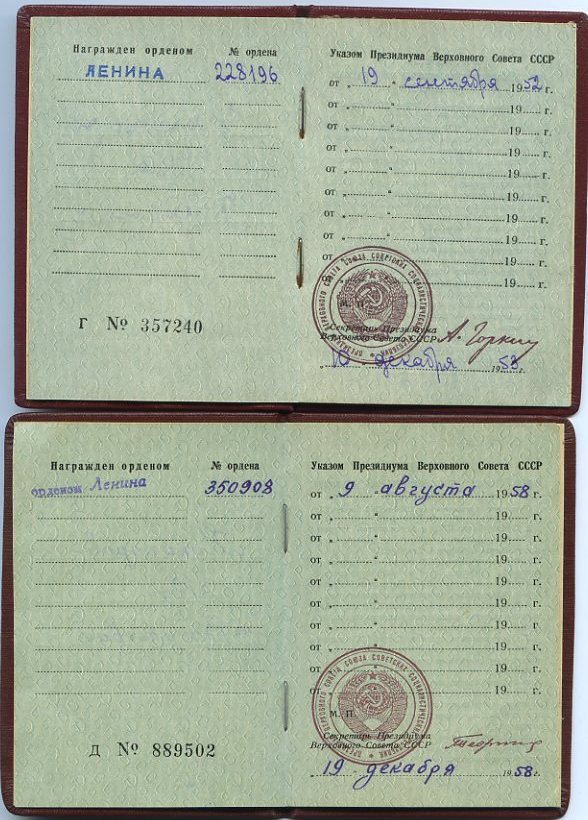 Награжден орденом № ордена
ЛЕНИНА 228196
Г № 357240
Указом Президиума Верховного Совета СССР
от „ 19 “ сентября 1952 г.
от „ “ 19 г.
от „ “ 19 г.
от „ “ 19 г.
от „ “ 19 г.
от „ “ 19 г.
от „ “ 19 г.
от „ “ 19 г.
от „ “ 19 г.
от „ “ 19 г.
М. П.
Секретарь Президиума
Верховного Совета СССР А. Горкин
„ 10 “ декабря 1953 г.
Награжден орденом № ордена
орденом Ленина 350908
Д № 889502
Указом Президиума Верховного Совета СССР
от „ 9 “ августа 1958 г.
от „ “ 19 г.
от „ “ 19 г.
от „ “ 19 г.
от „ “ 19 г.
от „ “ 19 г.
от „ “ 19 г.
от „ “ 19 г.
от „ “ 19 г.
от „ “ 19 г.
М. П.
Секретарь Президиума
Верховного Совета СССР
„ 19 “ декабря 1958 г.